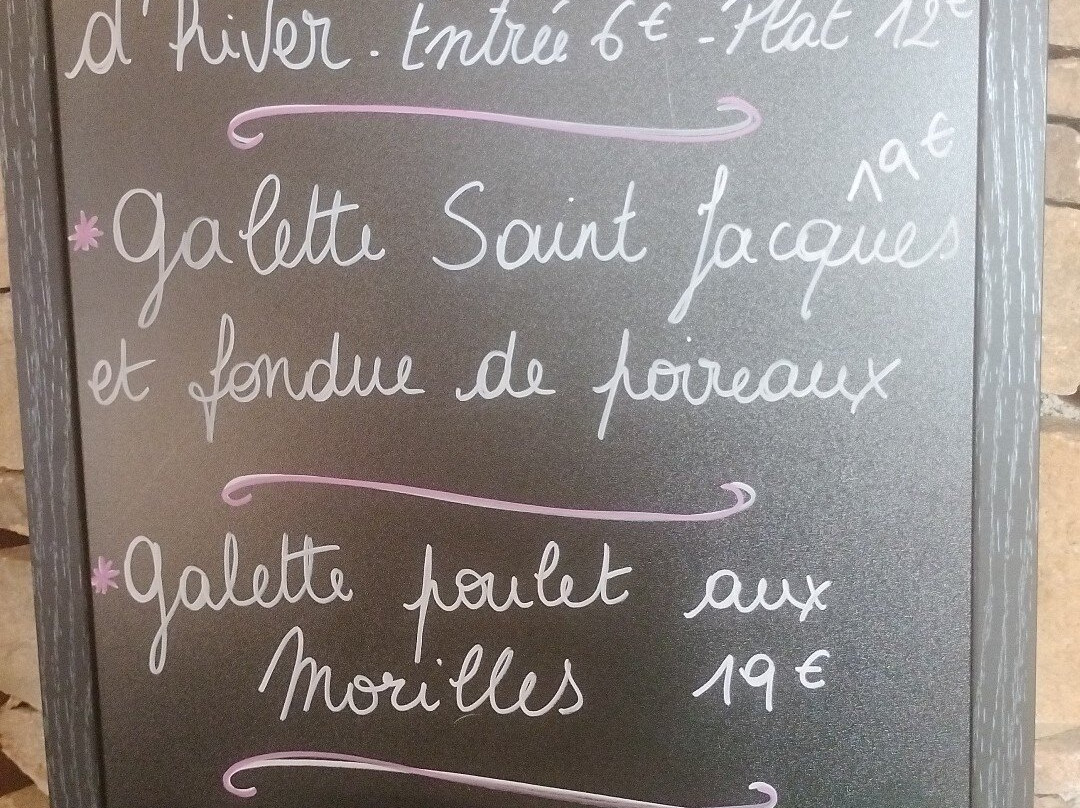 d'hiver - Entrée 6€ - Plat 12€
19€
* Galette Saint Jacques
et fondue de poireaux
* Galette poulet aux
Morilles 19€